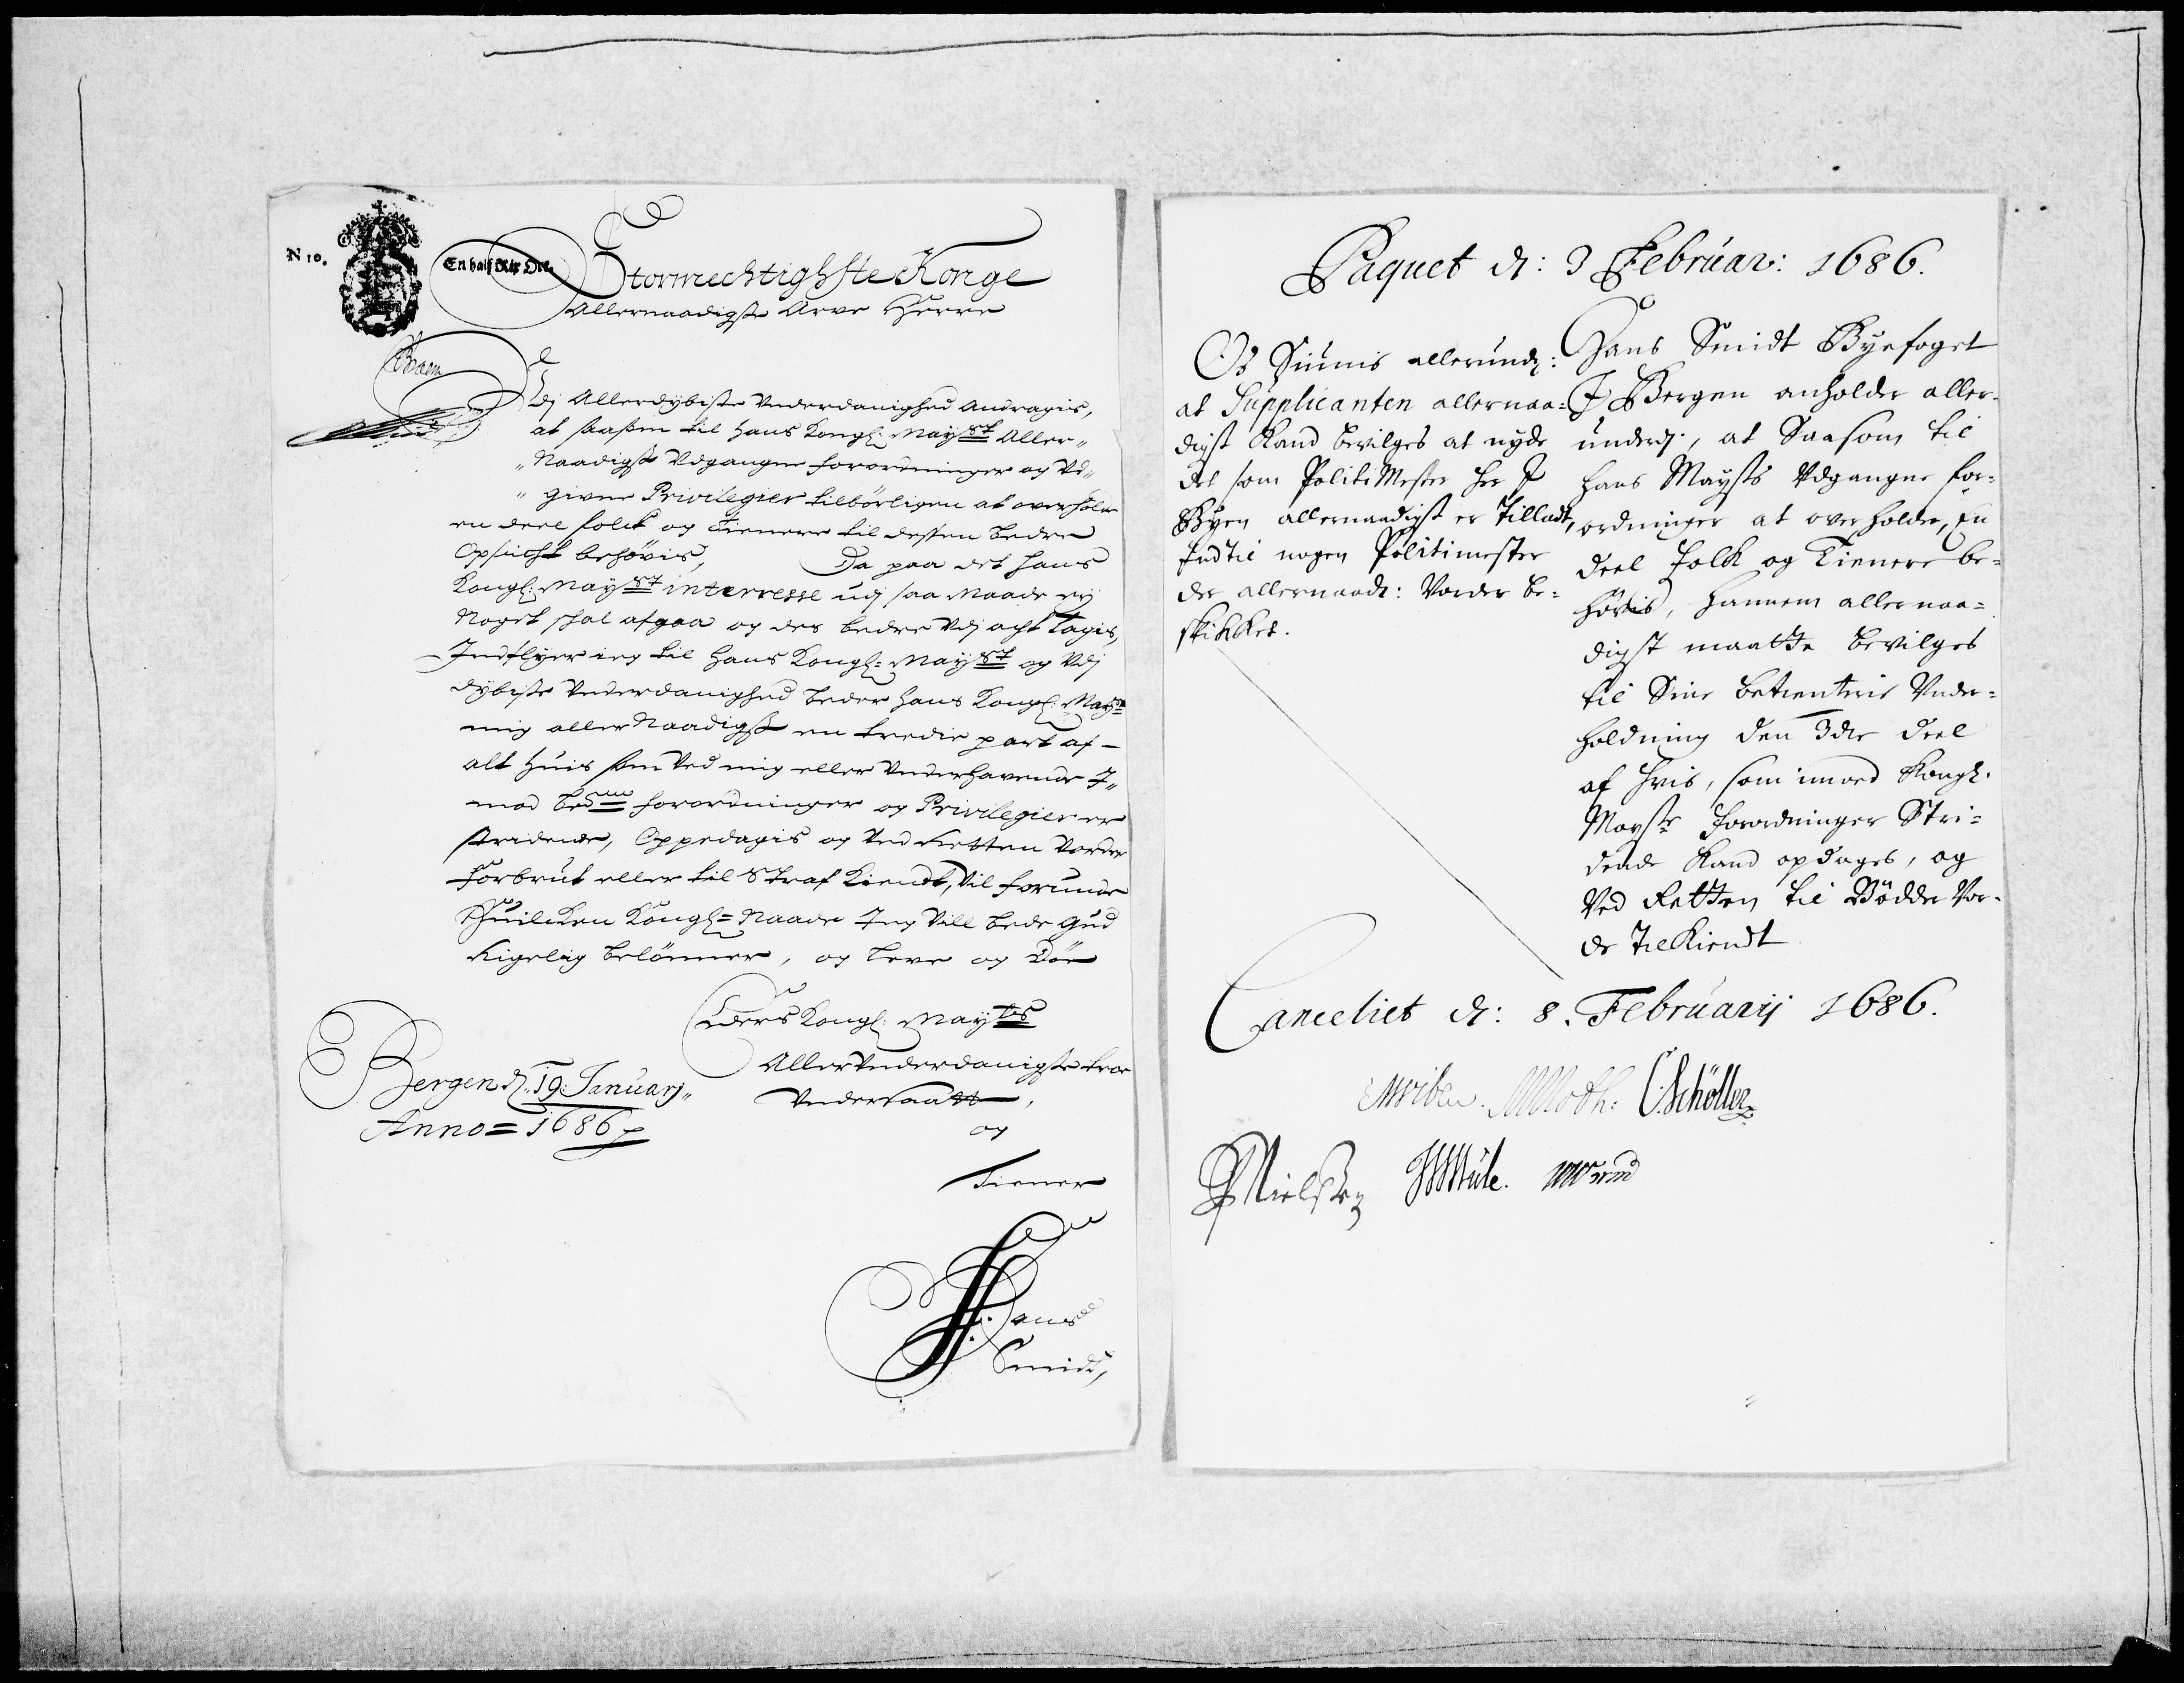 N 10.
En half Rix Dlr.
Stormechtighste Konge
Allernaadigste Arve Herre
Udj Allerdybiste Underdanighed Andragis,
at saasom til Hans Kongl: Mayst Aller„
„Naadigst Udgangne forordninger og Ud„
„givne Privilegier tilbörligen at overholde
en deel folck og Tienere til desten bedre
Opsicht behövis, Da paa det Hans
Kongl: Mayst interresse udj saa Maade ey
Noget skal afgaa og des bedre Udj acht tagis,
Indflyer ieg til Hans Kongl: Mayst og Udj
dybiste Underdanighed beder Hans Kongl: Mayst
mig aller Naadigst en tredie part af
alt huis som Ved mig eller Underhavende I„
mod bete forordninger og Privilegier er
stridende, Oppedagis og Ved Retten Vorder
Forbrut eller til Straf Kiendt, Vil forunde
Huilcken Kongl= Naade Ieg Vill bede Gud
Rigelig belönner, og Leve og Döe
Eders Kongl: Maytes
AllerUnderdanigste troe
Undersaatt,
og
Tiener
Hans
Smidt,
Bergen d. 19: January„
Anno= 1686
Paquet d: 3 Februar: 1686.
Os Siunis allerund:
at Supplicanten allernaa=
digst Kand bevilges at nyde
det som PolitiMester her I
Byen allernaadigst er Tilladt,
Indtil nogen Politimester
der allernaad: Vorder be=
skikket.
Hans Smidt Byefoget
I Bergen anholder aller=
underd:, at Saasom til
Hans Maysts Udgangne for=
ordninger at overholde, En
deel folk og Tienere be=
hövis, hannem allernaa=
digst maatte bevilges
til Sine betienteris Under=
holdning den 3die deel
af hvis, som imod Kongl.
Mayste forordninger Stri=
dende Kand opdages, og
Ved Retten til Bödde Vor=
de Tilkiendt
Canceliet d: 8. Februarij 1686.
Mwibe. MMoth: C:Schöller
PNielsen HMule. MWorm